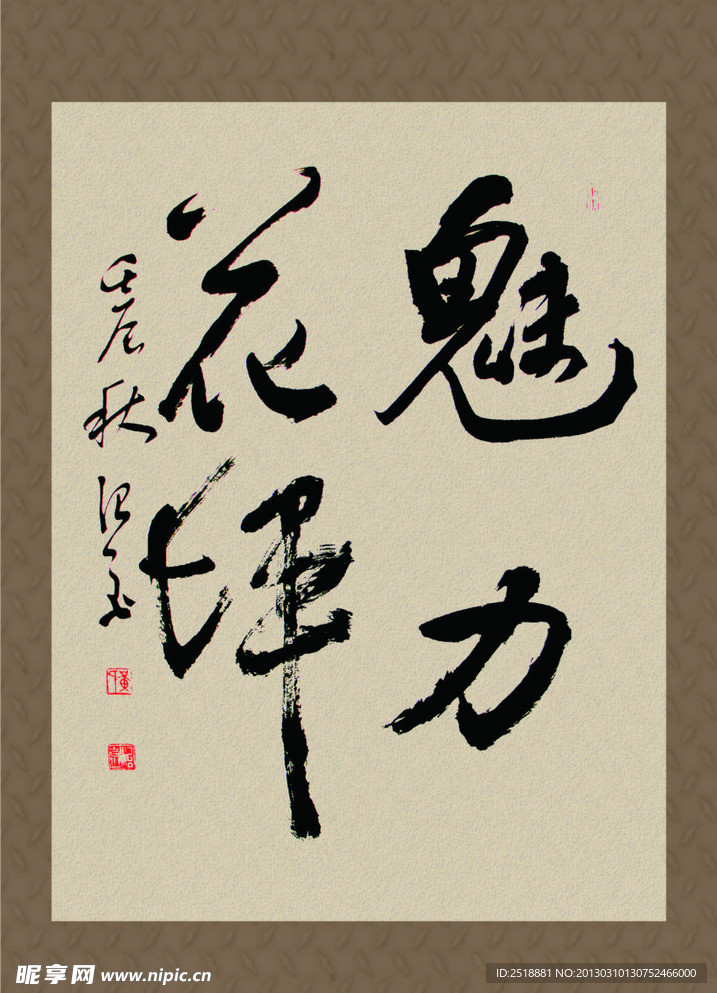 魅力
花煇
壬辰秋
昵享网 www.nipic.cn
ID:2518881 NO:20130310130752466000